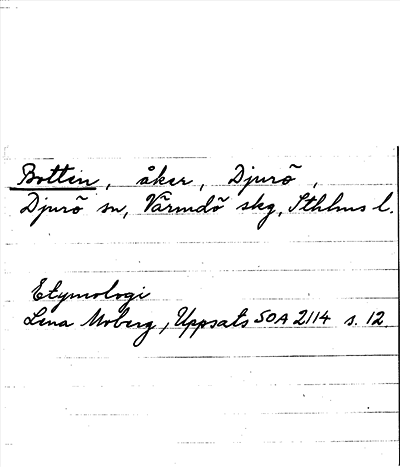 Botten, åker, Djurö,
Djurö sn, Värmdö skg, Sthlms l.
Etymologi
Lena Moberg, Uppsats SOA 2114 s. 12